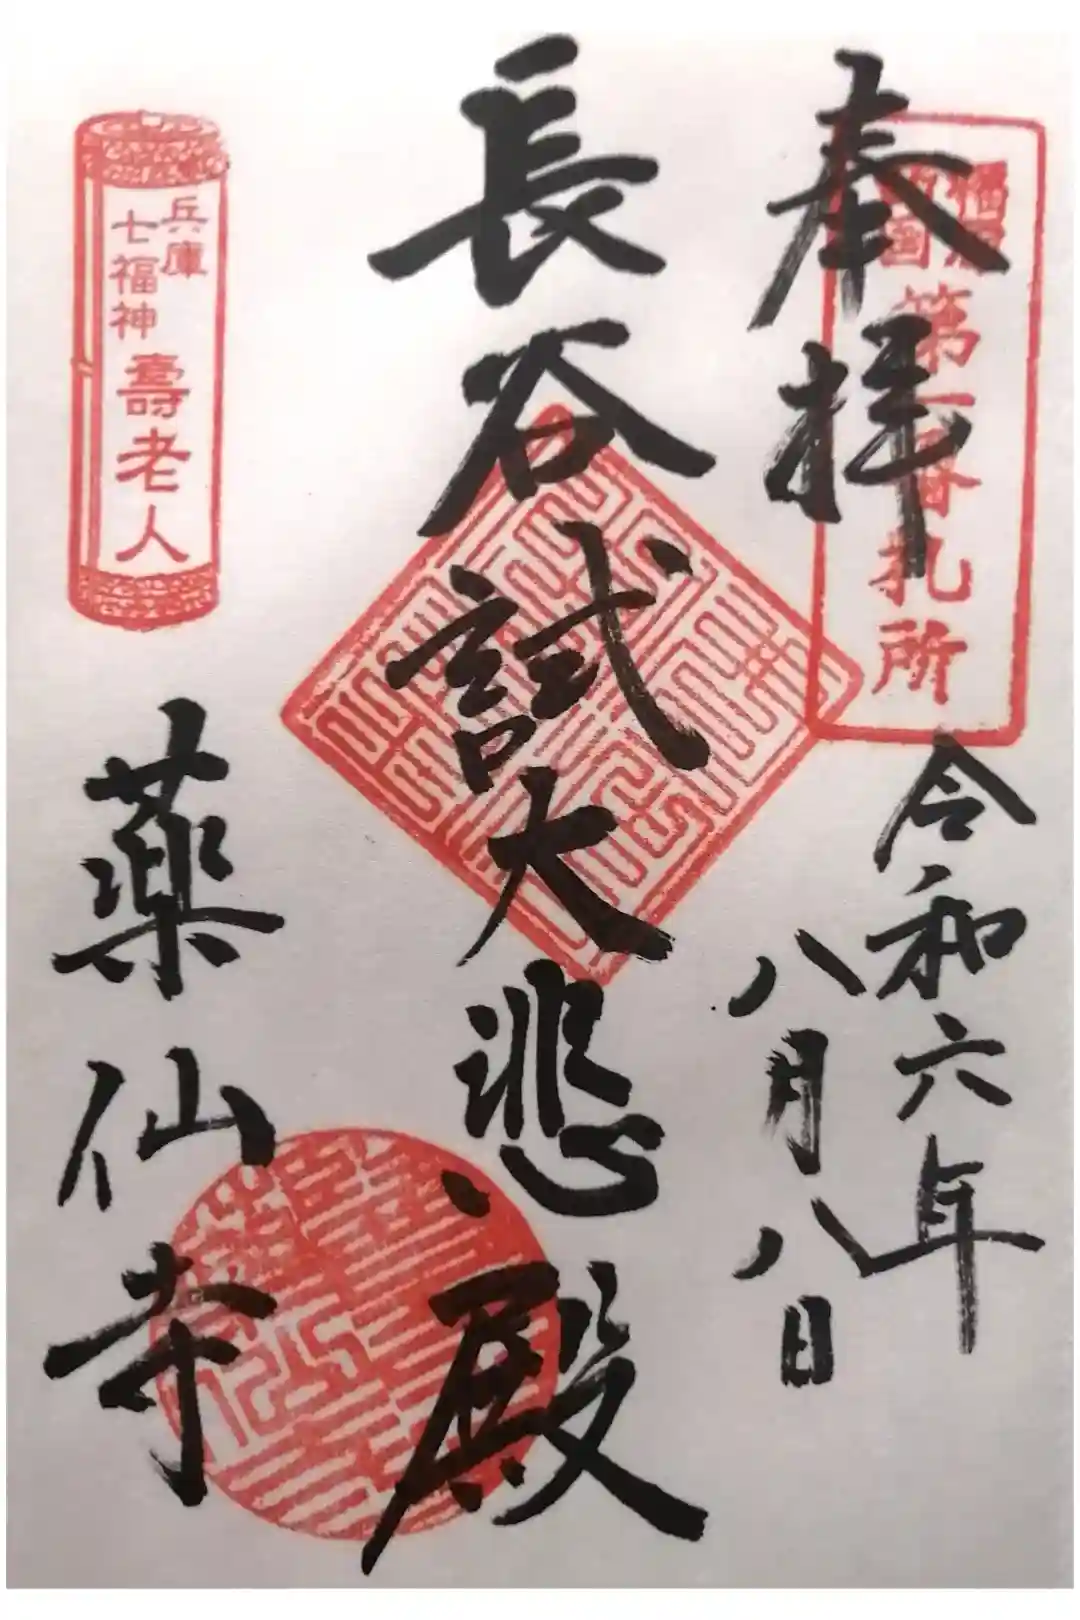 奉拝
第一番札所
令和六年
八月八日
長谷試大悲殿
兵庫
七福神
壽老人
薬仙寺